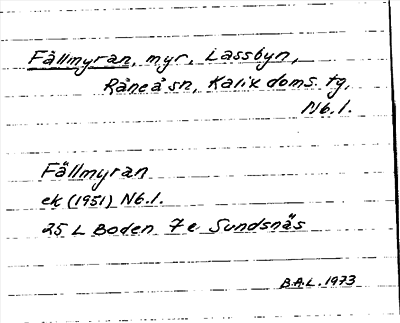 Fällmyran, myr, Lassbyn,
Råneå sn, Kalix doms. tg,
Nb. l.
Fällmyran
ek (1951) Nb. l.
25 L Boden 7 e Sundsnäs
B.A.L. 1973